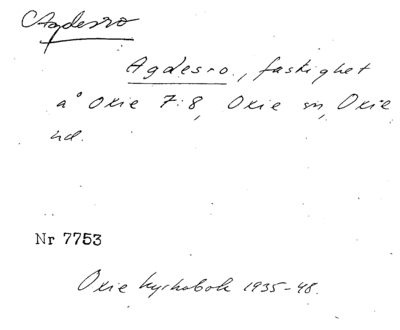 Agdesro
Agdesro., fastighet
å Oxie 7:8, Oxie sn, Oxie
hd.
Nr 7753
Oxie kyrkobok 1935-48.